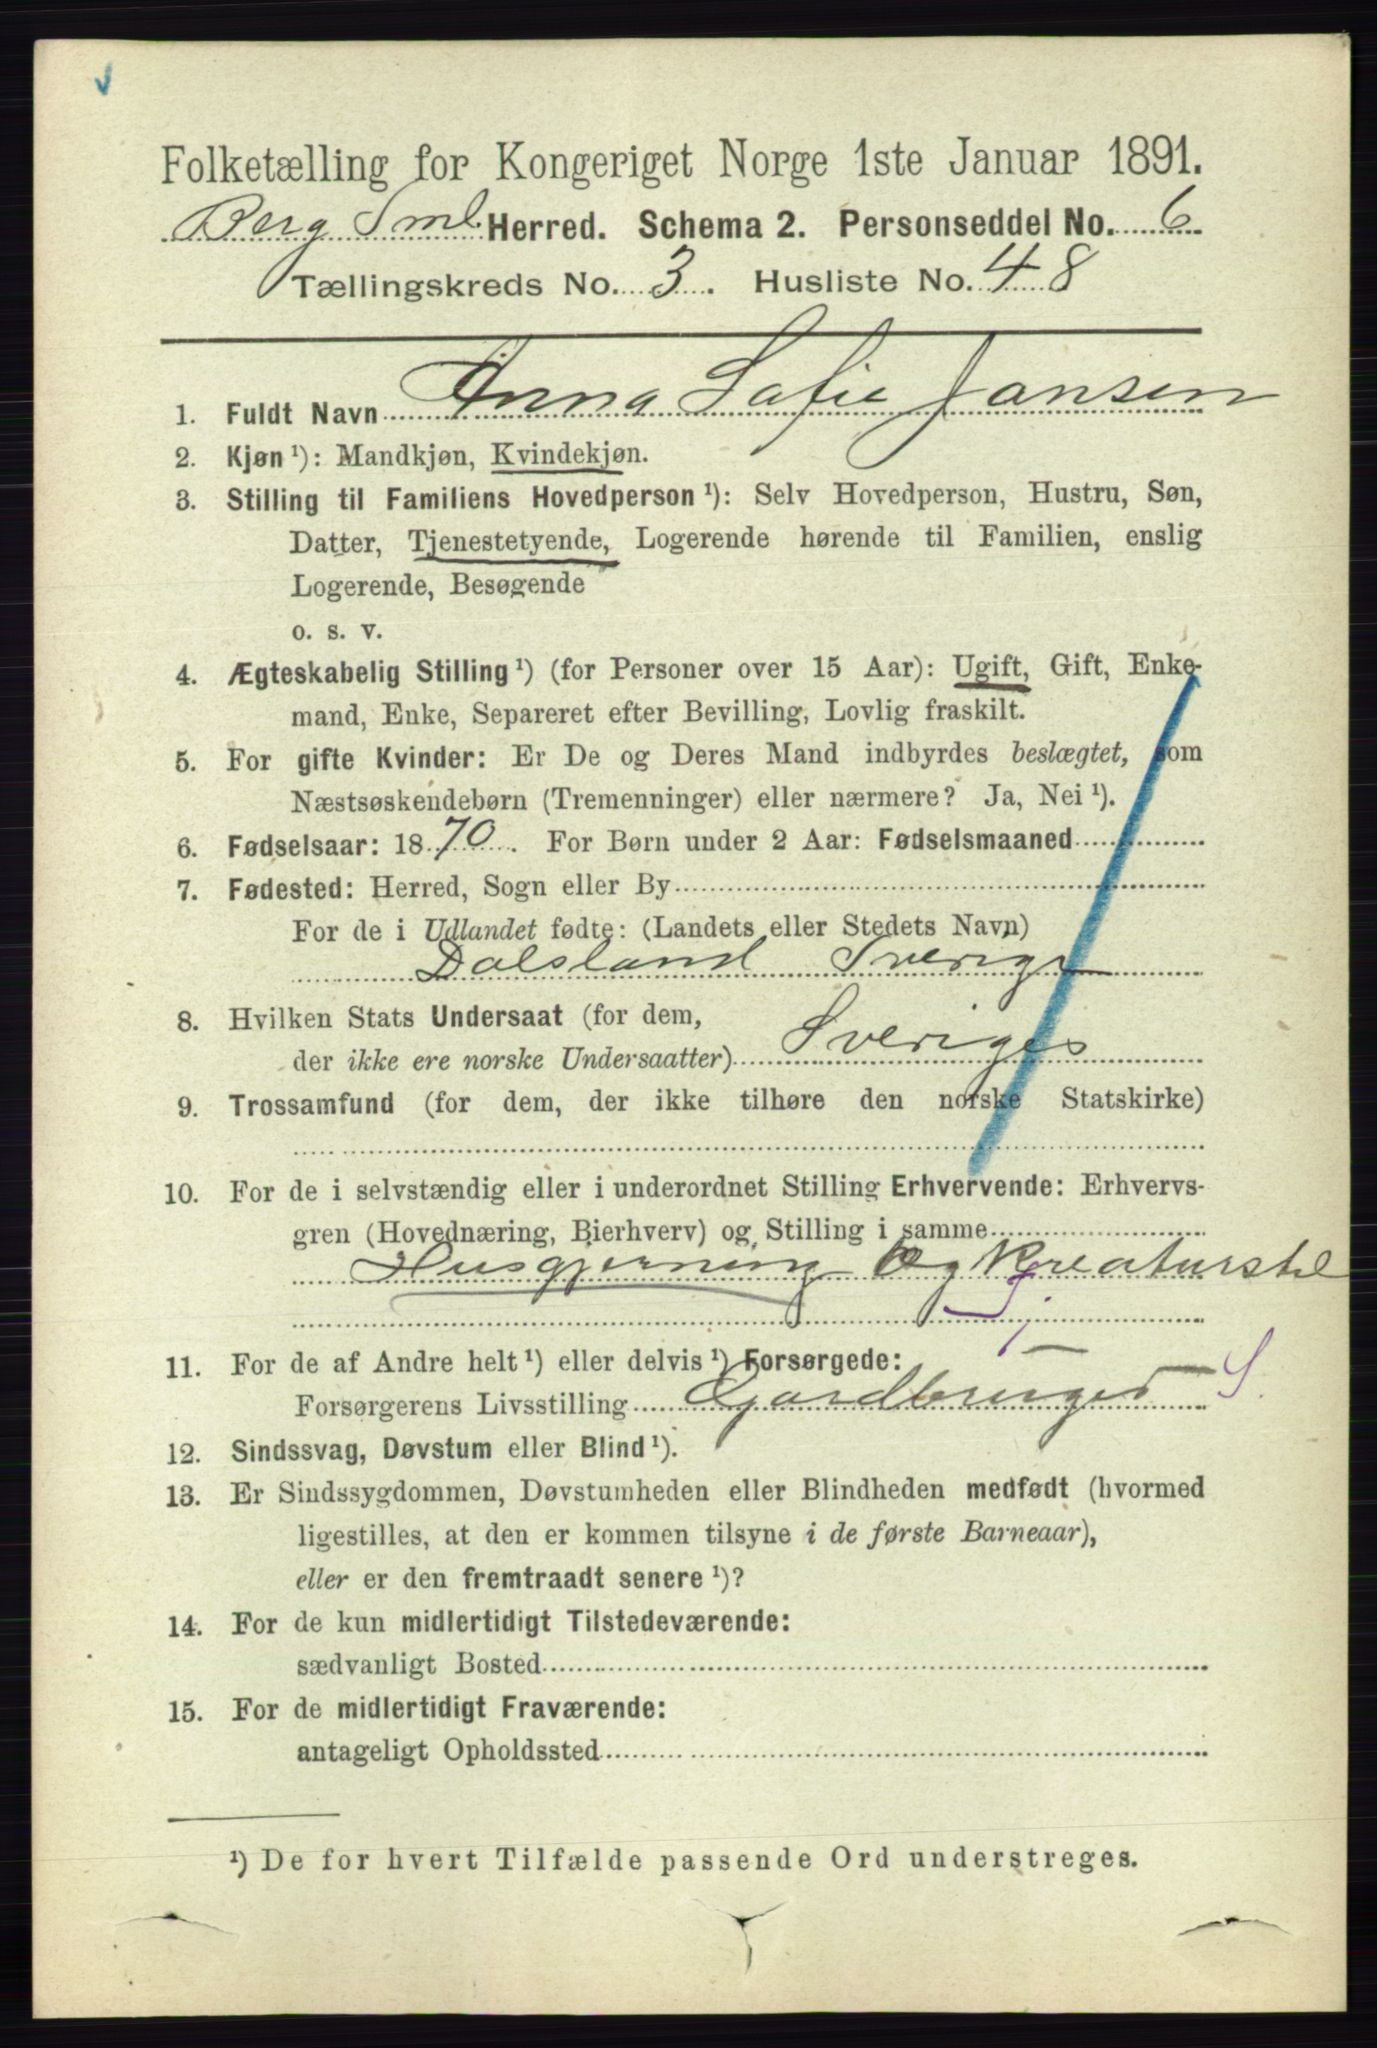 Folketælling for Kongeriget Norge 1ste Januar 1891.
Berg Sml Herred. Schema 2. Personseddel No. 6
Tællingskreds No. 3. Husliste No. 48
1. Fuldt Navn Anna Sofie Jansen
2. Kjøn ¹): Mandkjøn, Kvindekjøn.
3. Stilling til Familiens Hovedperson ¹): Selv Hovedperson, Hustru, Søn,
Datter, Tjenestetyende, Logerende hørende til Familien, enslig
Logerende, Besøgende
o. s. v.
4. Ægteskabelig Stilling ¹) (for Personer over 15 Aar): Ugift, Gift, Enke-
mand, Enke, Separeret efter Bevilling, Lovlig fraskilt.
5. For gifte Kvinder: Er De og Deres Mand indbyrdes beslægtet, som
Næstsøskendebørn (Tremenninger) eller nærmere? Ja, Nei ¹).
6. Fødselsaar: 1870. For Børn under 2 Aar: Fødselsmaaned
7. Fødested: Herred, Sogn eller By
For de i Udlandet fødte: (Landets eller Stedets Navn)
Dalsland Sverige
8. Hvilken Stats Undersaat (for dem,
der ikke ere norske Undersaatter) Sveriges
9. Trossamfund (for dem, der ikke tilhøre den norske Statskirke)
10. For de i selvstændig eller i underordnet Stilling Erhvervende: Erhvervs-
gren (Hovednæring, Bierhverv) og Stilling i samme
Husgjerning Og Kreaturstel
11. For de af Andre helt ¹) eller delvis ¹) Forsørgede:
Forsørgerens Livsstilling Gardbruger S.
12. Sindssvag, Døvstum eller Blind ¹).
13. Er Sindssygdommen, Døvstumheden eller Blindheden medfødt (hvormed
ligestilles, at den er kommen tilsyne i de første Barneaar),
eller er den fremtraadt senere ¹)?
14. For de kun midlertidigt Tilstedeværende:
sædvanligt Bosted
15. For de midlertidigt Fraværende:
antageligt Opholdssted
¹) De for hvert Tilfælde passende Ord understreges.